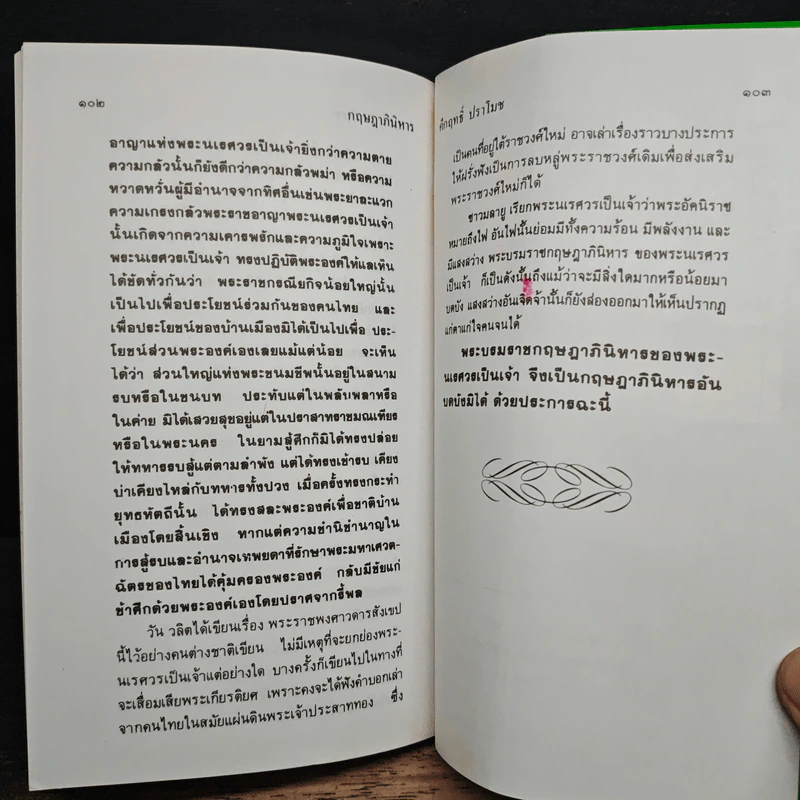 ๑๐๒
กฤษฎาภินิหาร
อาญาแห่งพระนเรศวรเป็นเจ้ายิ่งกว่าความตาย
ความกลัวนั้นก็ยังดีกว่าความกลัวพม่า หรือความ
หวาดหวั่นผู้มีอำนาจจากทิศอื่นเช่นพระยาละแวก
ความเกรงกลัวพระราชอาญาพระนเรศวรเป็นเจ้า
นั้นเกิดจากความเคารพรักและความภูมิใจเพราะ
พระนเรศวรเป็นเจ้า ทรงปฏิบัติพระองค์ให้แลเห็น
ได้ชัดทั่วกันว่า พระราชกรณียกิจน้อยใหญ่นั้น
เป็นไปเพื่อประโยชน์ร่วมกันของคนไทย และ
เพื่อประโยชน์ของบ้านเมืองมิได้เป็นไปเพื่อ ประ-
โยชน์ส่วนพระองค์เองเลยแม้แต่น้อย จะเห็น
ได้ว่า ส่วนใหญ่แห่งพระชนมชีพนั้นอยู่ในสนาม
รบหรือในชนบท ประทับแต่ในพลับพลาหรือ
ในค่าย มิได้เสวยสุขอยู่แต่ในปราสาทราชมณเฑียร
หรือในพระนคร ในยามสู้ศึกก็มิได้ทรงปล่อย
ให้ทหารรบสู้แต่ตามลำพัง แต่ได้ทรงเข้ารบ เคียง
บ่าเคียงไหล่กับทหารทั้งปวง เมื่อครั้งทรงกระทำ
ยุทธหัตถีนั้น ได้ทรงสละพระองค์เพื่อชาติบ้าน
เมืองโดยสิ้นเชิง หากแต่ความชำนิชำนาญใน
การสู้รบและอำนาจเทพยดาที่รักษาพระมหาเศวต-
ฉัตรของไทยได้คุ้มครองพระองค์ กลับมีชัยแก่
ข้าศึกด้วยพระองค์เองโดยปราศจากรี้พล
วัน วลิตได้เขียนเรื่อง พระราชพงศาวดารสังเขป
นี้ไว้อย่างคนต่างชาติเขียน ไม่มีเหตุที่จะยกย่องพระ-
นเรศวรเป็นเจ้าแต่อย่างใด บางครั้งก็เขียนไปในทางที่
จะเสื่อมเสียพระเกียรติยศ เพราะคงจะได้ฟังคำบอกเล่า
จากคนไทยในสมัยแผ่นดินพระเจ้าประสาททอง ซึ่ง
คึกฤทธิ์ ปราโมช
๑๐๓
เป็นคนที่อยู่ใต้ราชวงศ์ใหม่ อาจเล่าเรื่องราวบางประการ
ให้ฝรั่งฟังเป็นการลบหลู่พระราชวงศ์เดิมเพื่อส่งเสริม
พระราชวงศ์ใหม่ก็ได้
ชาวมลายู เรียกพระนเรศวรเป็นเจ้าว่าพระอัคนิราช
หมายถึงไฟ อันไฟนั้นย่อมมีทั้งความร้อน มีพลังงาน และ
มีแสงสว่าง พระบรมราชกฤษฎาภินิหาร ของพระนเรศวร
เป็นเจ้า ก็เป็นดังนั้นถึงแม้ว่าจะมีสิ่งใดมากหรือน้อยมา
บดบัง แสงสว่างอันเจิดจ้านั้นก็ยังส่องออกมาให้เห็นปรากฏ
แก่ตาแก่ใจคนจนได้
พระบรมราชกฤษฎาภินิหารของพระ-
นเรศวรเป็นเจ้า จึงเป็นกฤษฎาภินิหารอัน
บดบังมิได้ ด้วยประการฉะนี้